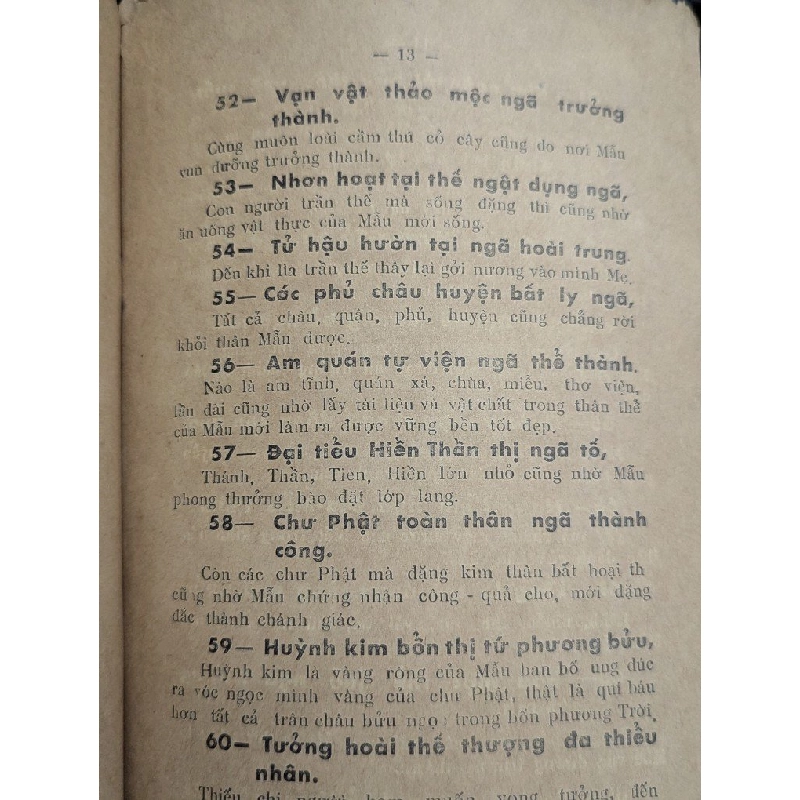 — 13 —
52— Vạn vật thảo mộc ngã trưởng
thành.
Cùng muôn loài cầm thú cỏ cây cũng do nơi Mẫu
un dưỡng trưởng thành.
53— Nhơn hoạt tại thế ngật dụng ngã,
Con người trần thế mà sống đặng thì cũng nhờ
ăn uông vật thực của Mẫu mới sống.
54— Tử hậu hườn tại ngã hoài trung.
Đến khi lìa trần thế thảy lại gởi nương vào mình Mẹ.
55— Các phủ châu huyện bất ly ngã,
Tất cả châu, quán, phủ, huyện cũng chẳng rời
khỏi thân Mẫu được.
56— Am quán tự viện ngã thể thành.
Nào là am tĩnh, quán xá, chùa, miều, thơ viện,
lầu đài cũng nhờ lấy tài liệu và vật chất trong thân thể
của Mẫu mới làm ra được vững bền tốt đẹp.
57— Đại tiểu Hiền Thần thị ngã tố,
Thánh, Thần, Tien, Hiền lớn nhỏ cũng nhờ Mẫu
phong thưởng bào đặt lớp lang.
58— Chư Phật toàn thân ngã thành
công.
Còn các chư Phật mà đặng kim thân bất hoại th
cũng nhờ Mẫu chứng nhận công - quả cho, mới đặng
đắc thành chánh giác.
59— Huỳnh kim bổn thị tứ phương bửu,
Huỳnh kim là vàng ròng của Mẫu ban bố ung đúc
ra vóc ngọc mình vàng của chư Phật, thật là quí báu
hơn tất cả trân châu bửu ngọc trong bốn phương Trời.
60— Tưởng hoài thế thượng đa thiểu
nhân.
Thiếu chi người muốn vọng tưởng, đến